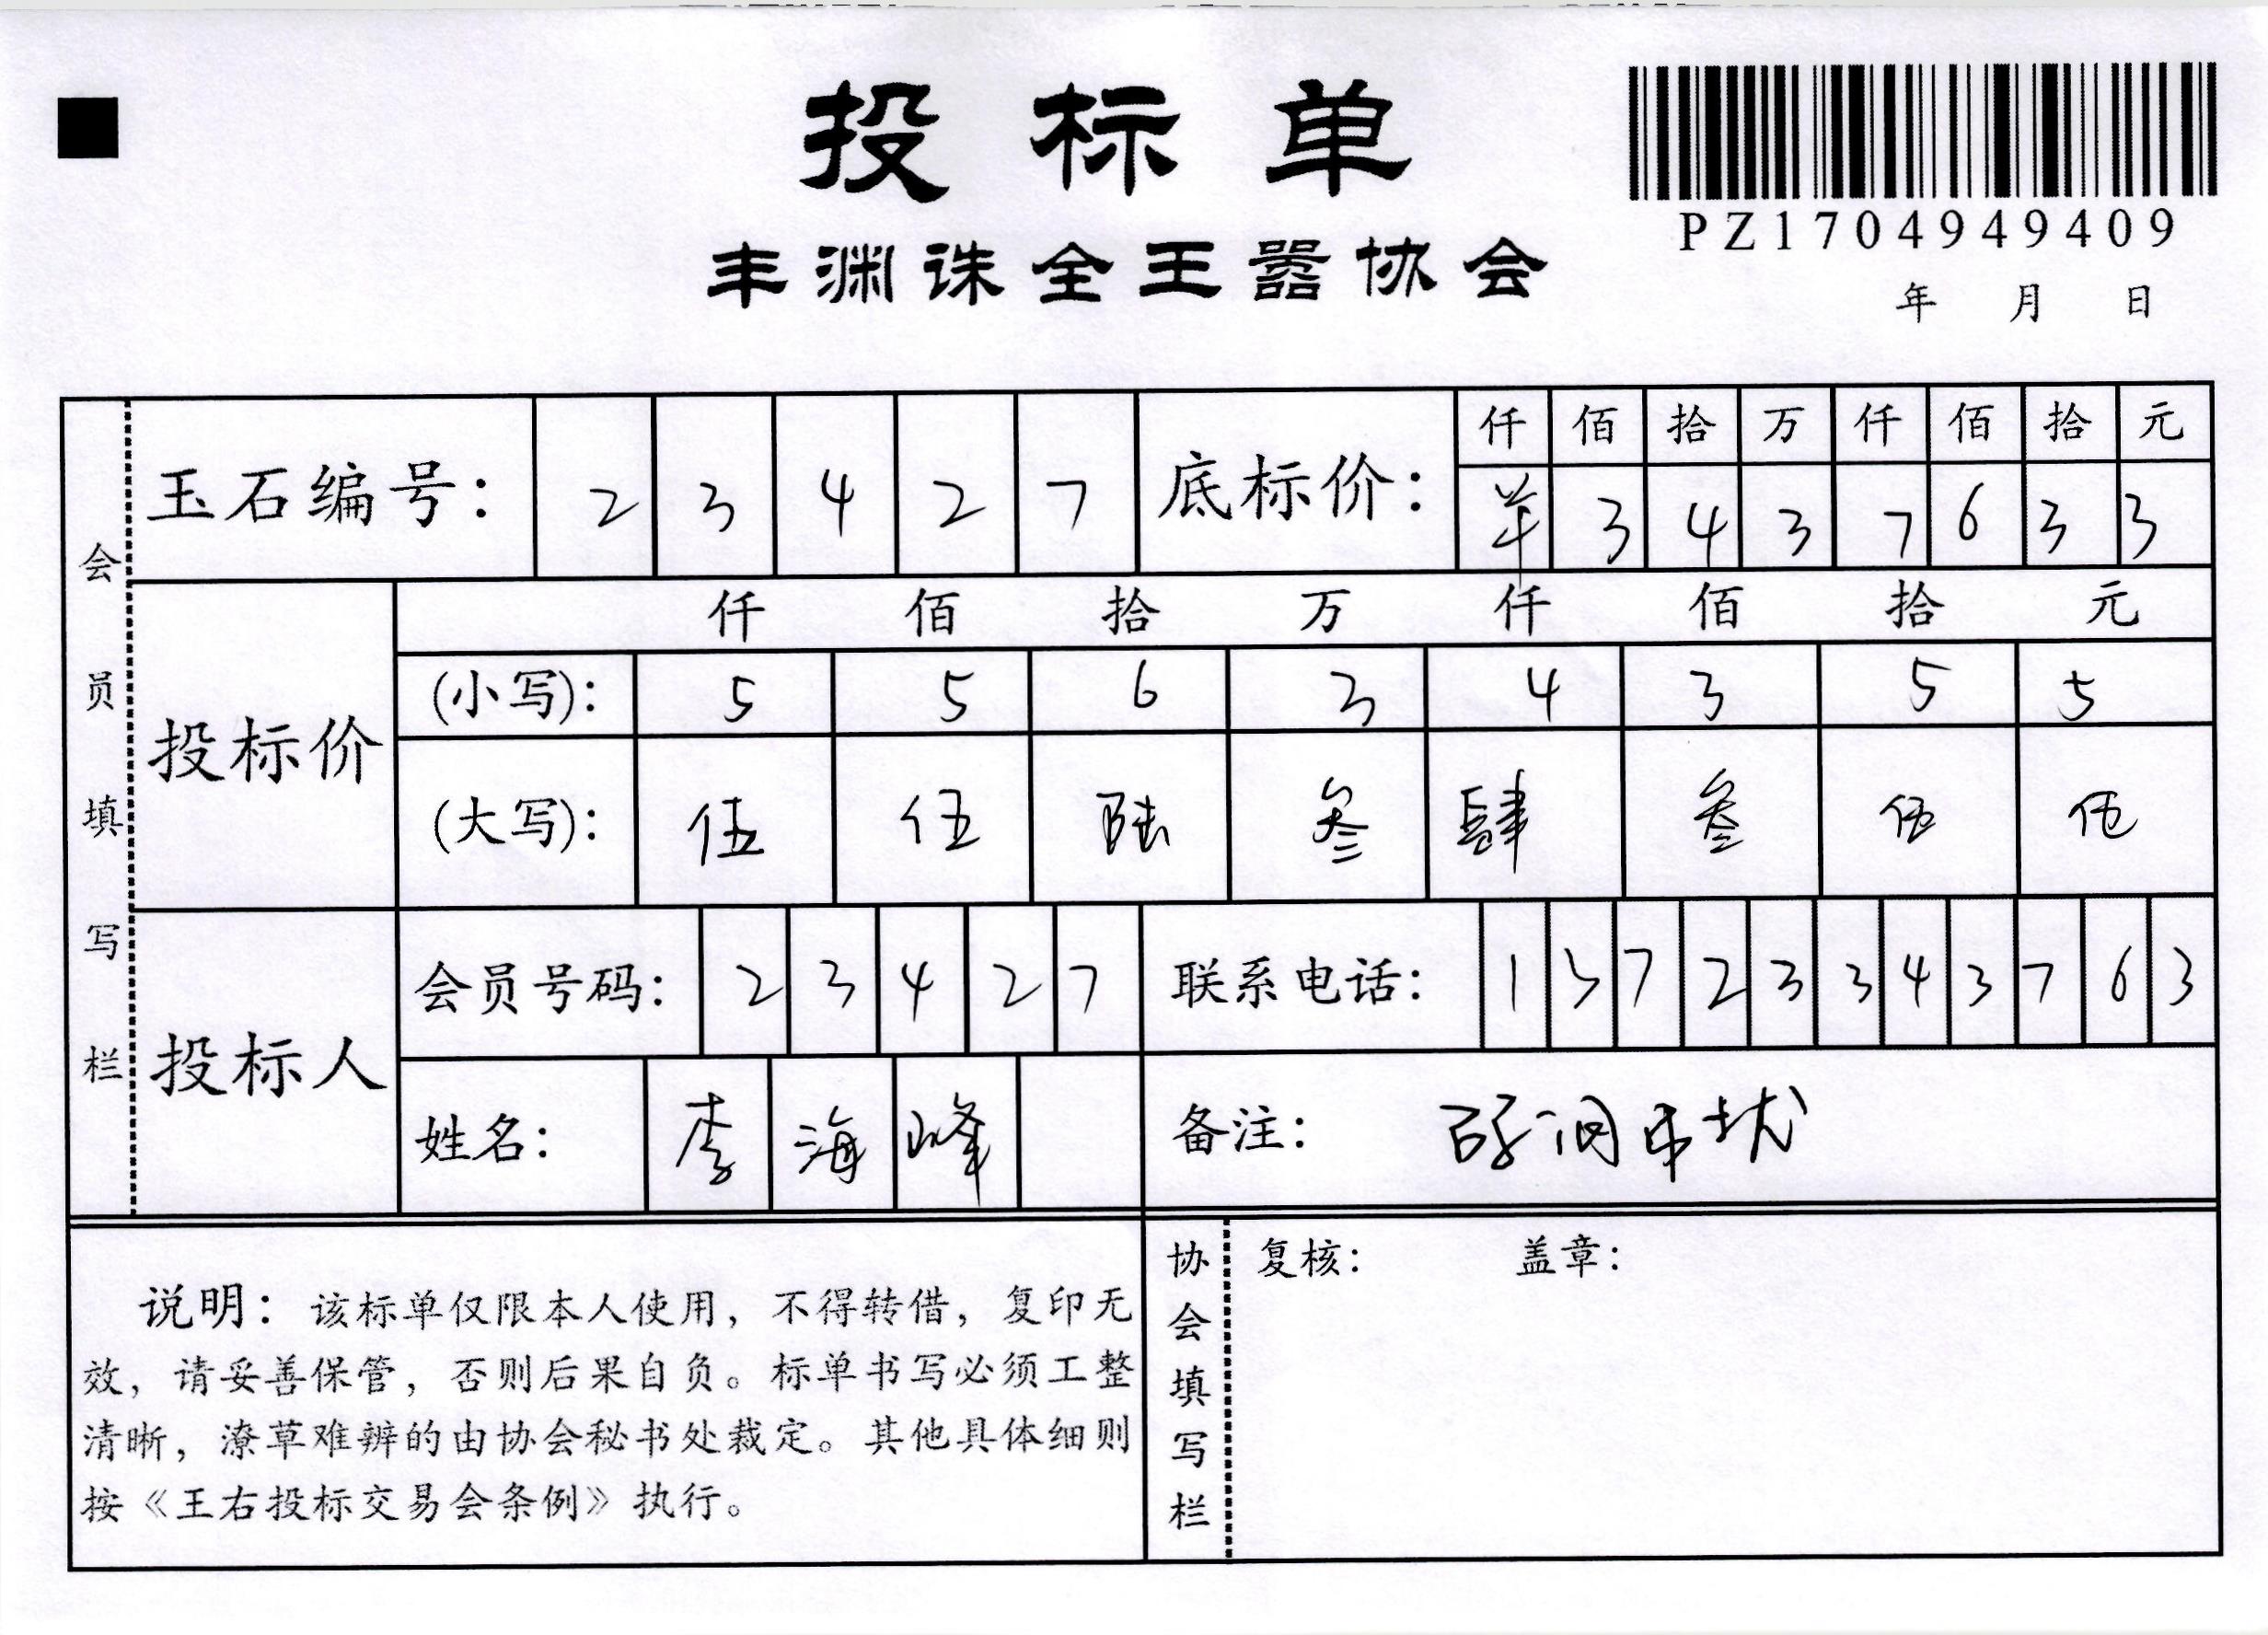 投标单
PZ1704949409
丰渊诛全王嚣协会
年 月 日
会员填写栏
玉石编号： 2 3 4 2 7
底标价： 仟 佰 拾 万 仟 佰 拾 元
3 4 3 7 6 3 3
投标价 仟 佰 拾 万 仟 佰 拾 元
(小写)： 5 5 6 3 4 3 5 5
(大写)： 伍 伍 陆 叁 肆 叁 伍 伍
投标人
会员号码： 2 3 4 2 7
联系电话： 1 3 7 2 3 3 4 3 7 6 3
姓名： 李 海 峰
备注：
说明：该标单仅限本人使用，不得转借，复印无
效，请妥善保管，否则后果自负。标单书写必须工整
清晰，潦草难辨的由协会秘书处裁定。其他具体细则
按《王右投标交易会条例》执行。
协会填写栏
复核： 盖章：